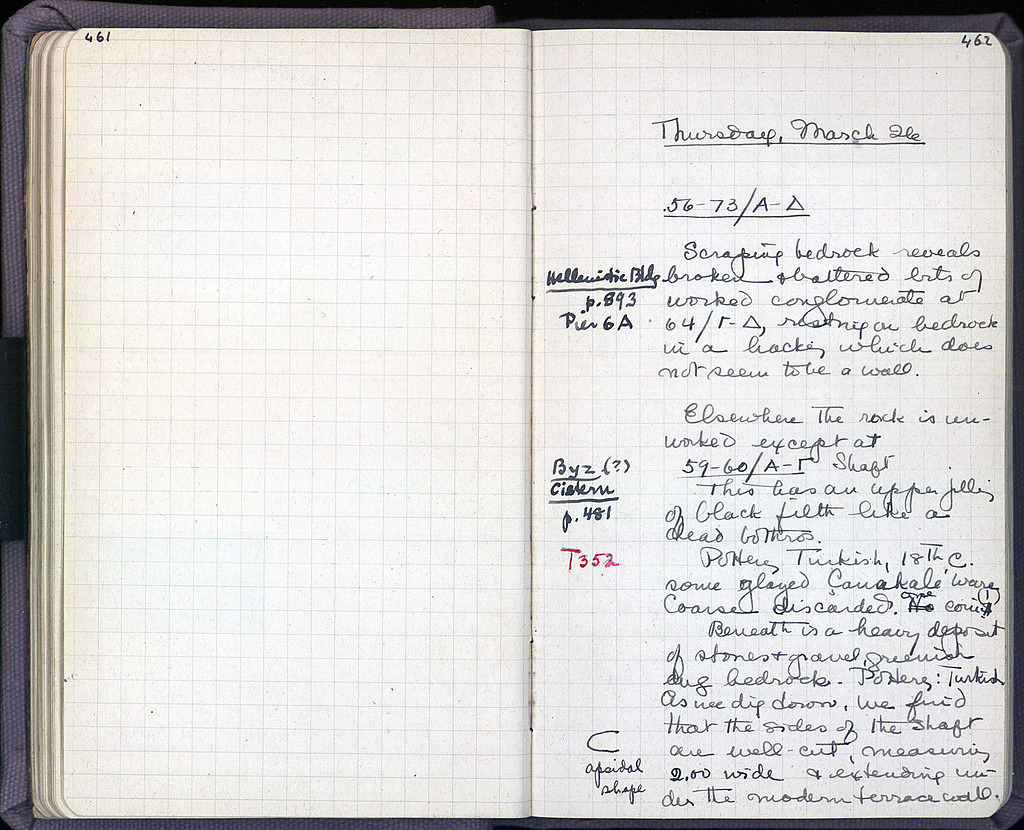 461
462
Thursday, March 26
56-73/A-Δ
Scraping bedrock reveals
Hellenistic Bldg.
p. 893
Pier 6A
broken & battered bits of
worked conglomerate at
64/Γ-Δ, resting on bedrock
in a                which does
not seem to be a wall.
Elsewhere the rock is un-
worked except at
Byz (?)
Cistern
p. 481
59-60/A-Γ Shaft
This has an upper filling
of black filth like a
dead bothros.
T352
Pottery Turkish, 18th C.
some glazed Çanakale ware
Coarse discarded. one coin (1)
Beneath is a heavy deposit
of stones & gravel, greenish
dug bedrock. Pottery: Turkish
As we dig down, we find
that the sides of the shaft
are well-cut, measuring
apsidal
shape
2.00 wide & extending un-
der the modern terrace wall.